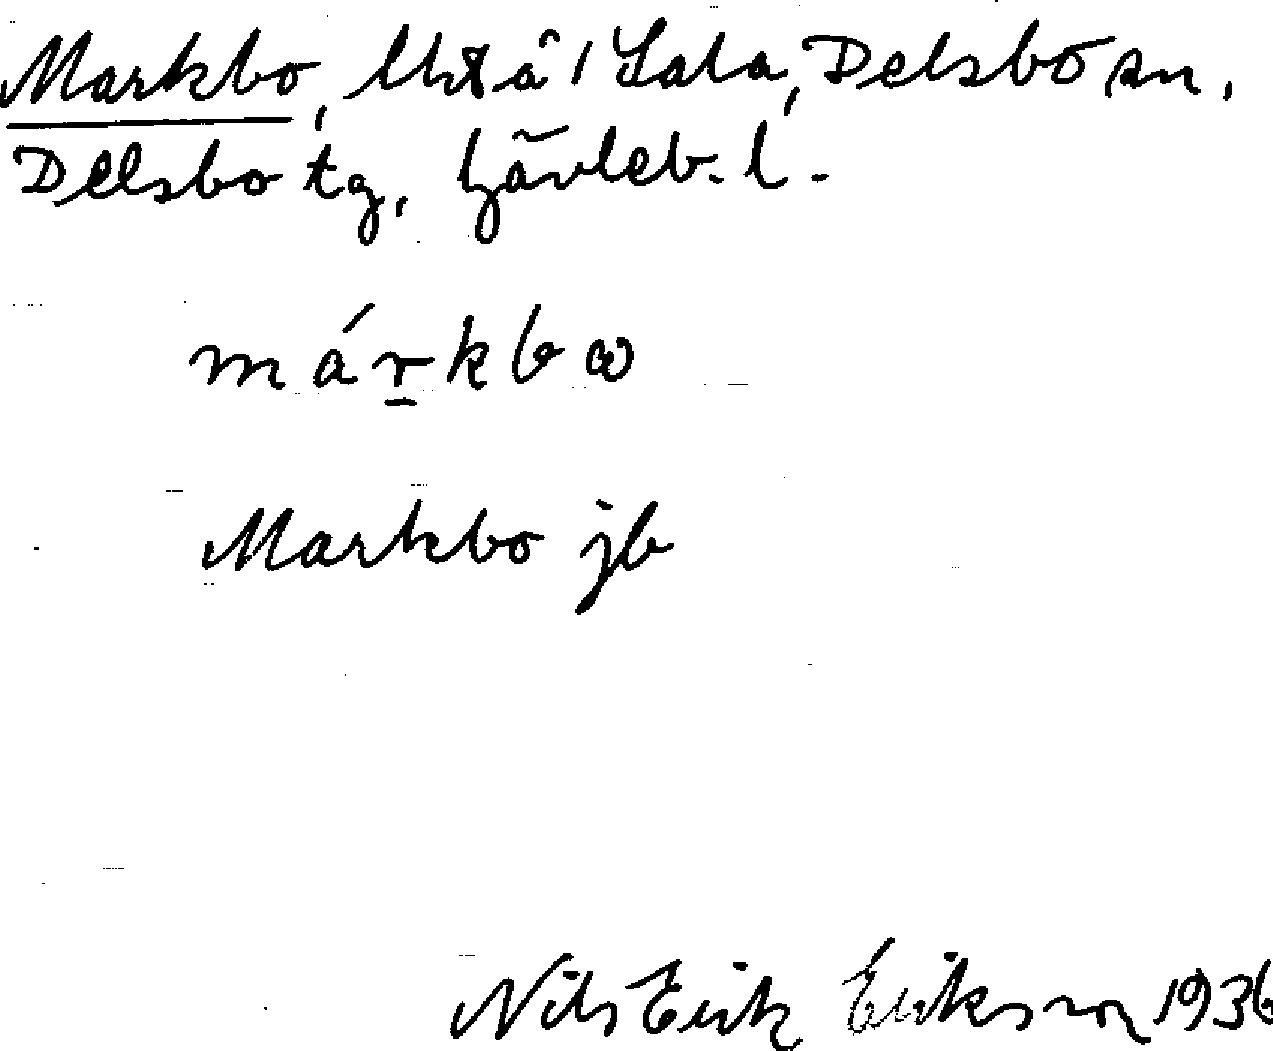 Markbo, på Sala, Delsbo sn,
Delsbo tg, Gävleb. l.
márkbω
Markbo jb
Nils Erik Eriksson 1936